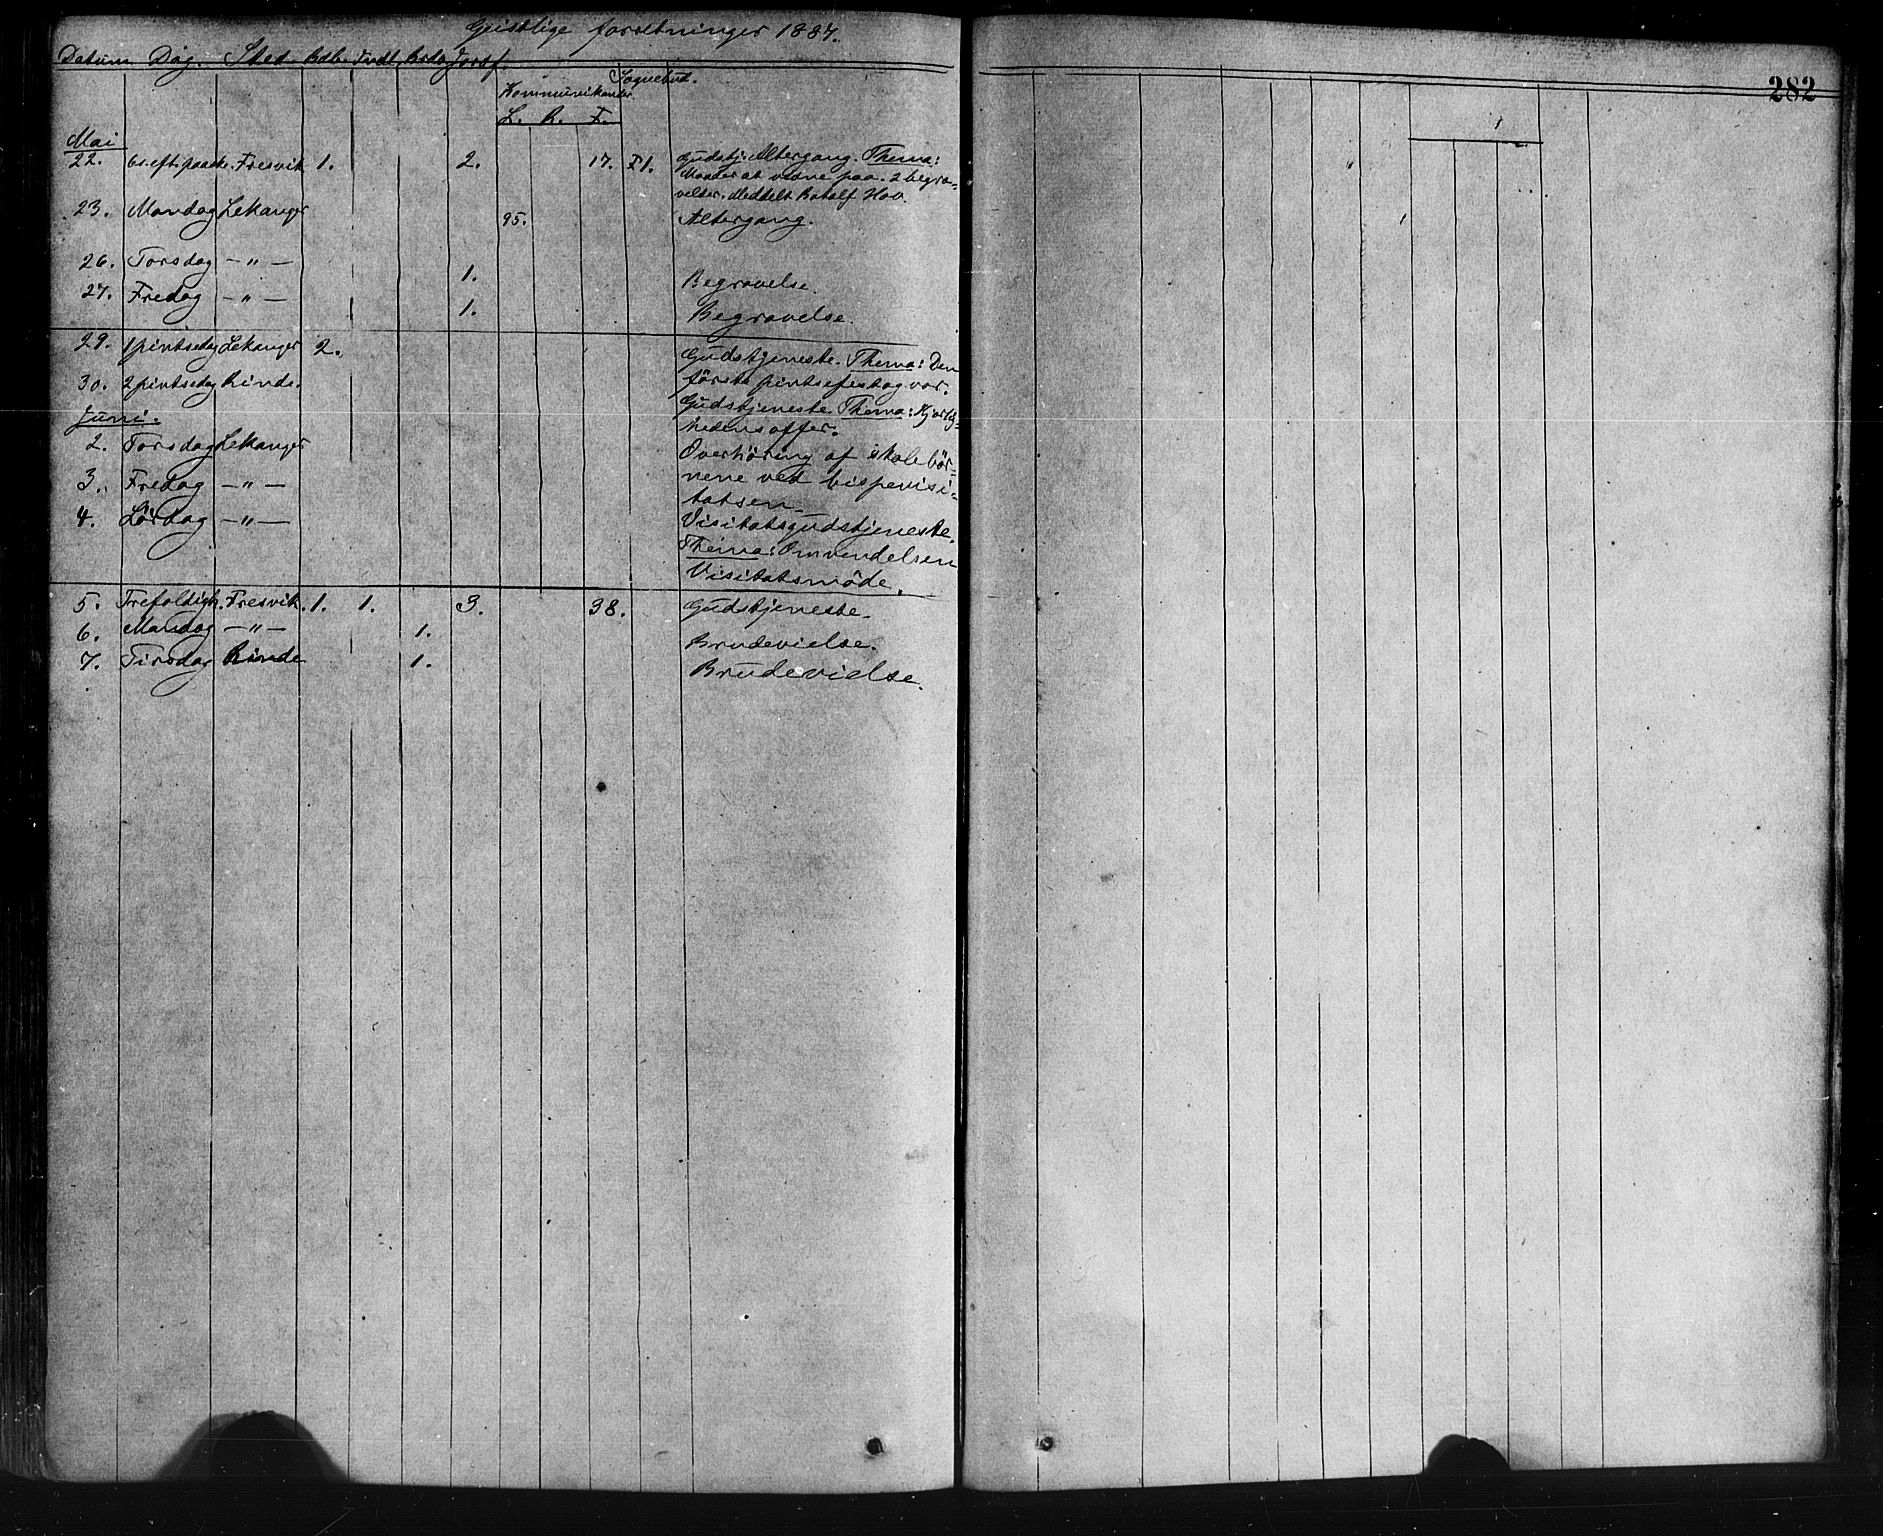 Geistlige forretninger 1887.
Datum Dag. Sted Bdb. Indl. Brdv Jordf.
Sognebud.
Kommunikanter.
L. R. F.
282
Mai
22. 6 s. eft. paaske. Fresvik 1. 2. 17. F1. Gudstj. Altergang. Thema:
Maader at vidne paa. 2 begra-
velser. Meddelt Botolf Hov.
23. Mandag Lekanger 95. Altergang.
26. Torsdag – " – 1. Begravelse.
27. Fredag – " – 1. Begravelse.
29. 1 pintsedag Lekanger 2. Gudstjeneste. Thema: Den
første pintsefestdag var.
30. 2 pintsedag Rinde. Gudstjeneste. Thema: Kjærlig-
hedens offer.
Juni.
2. Torsdag Lekanger Overhøring af skolebør-
3. Fredag – " – nene ved bispevisi-
tatsen.
4. Lørdag – " – Visitatsgudstjeneste.
Thema: Omvendelsen
Visitatsmøde.
5. Trefoldigh. Fresvik. 1. 1. 3. 38. Gudstjeneste.
6. Mandag – " – 1. Brudevielse.
7. Tirsdag Rinde 1. Brudevielse.